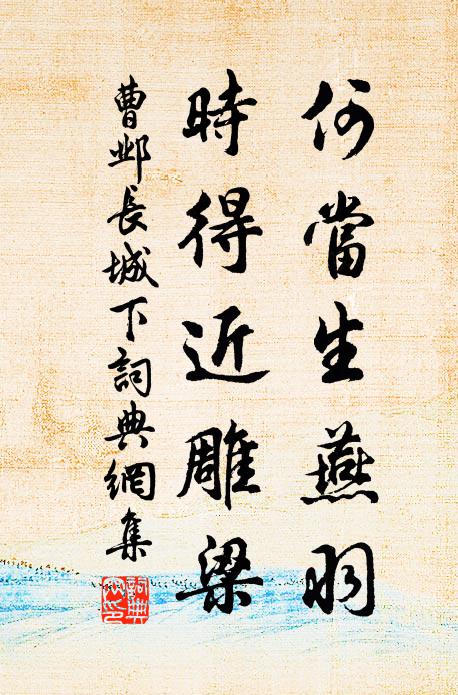 何當生燕羽
時得近雕梁
曹邺長城下詞典網集